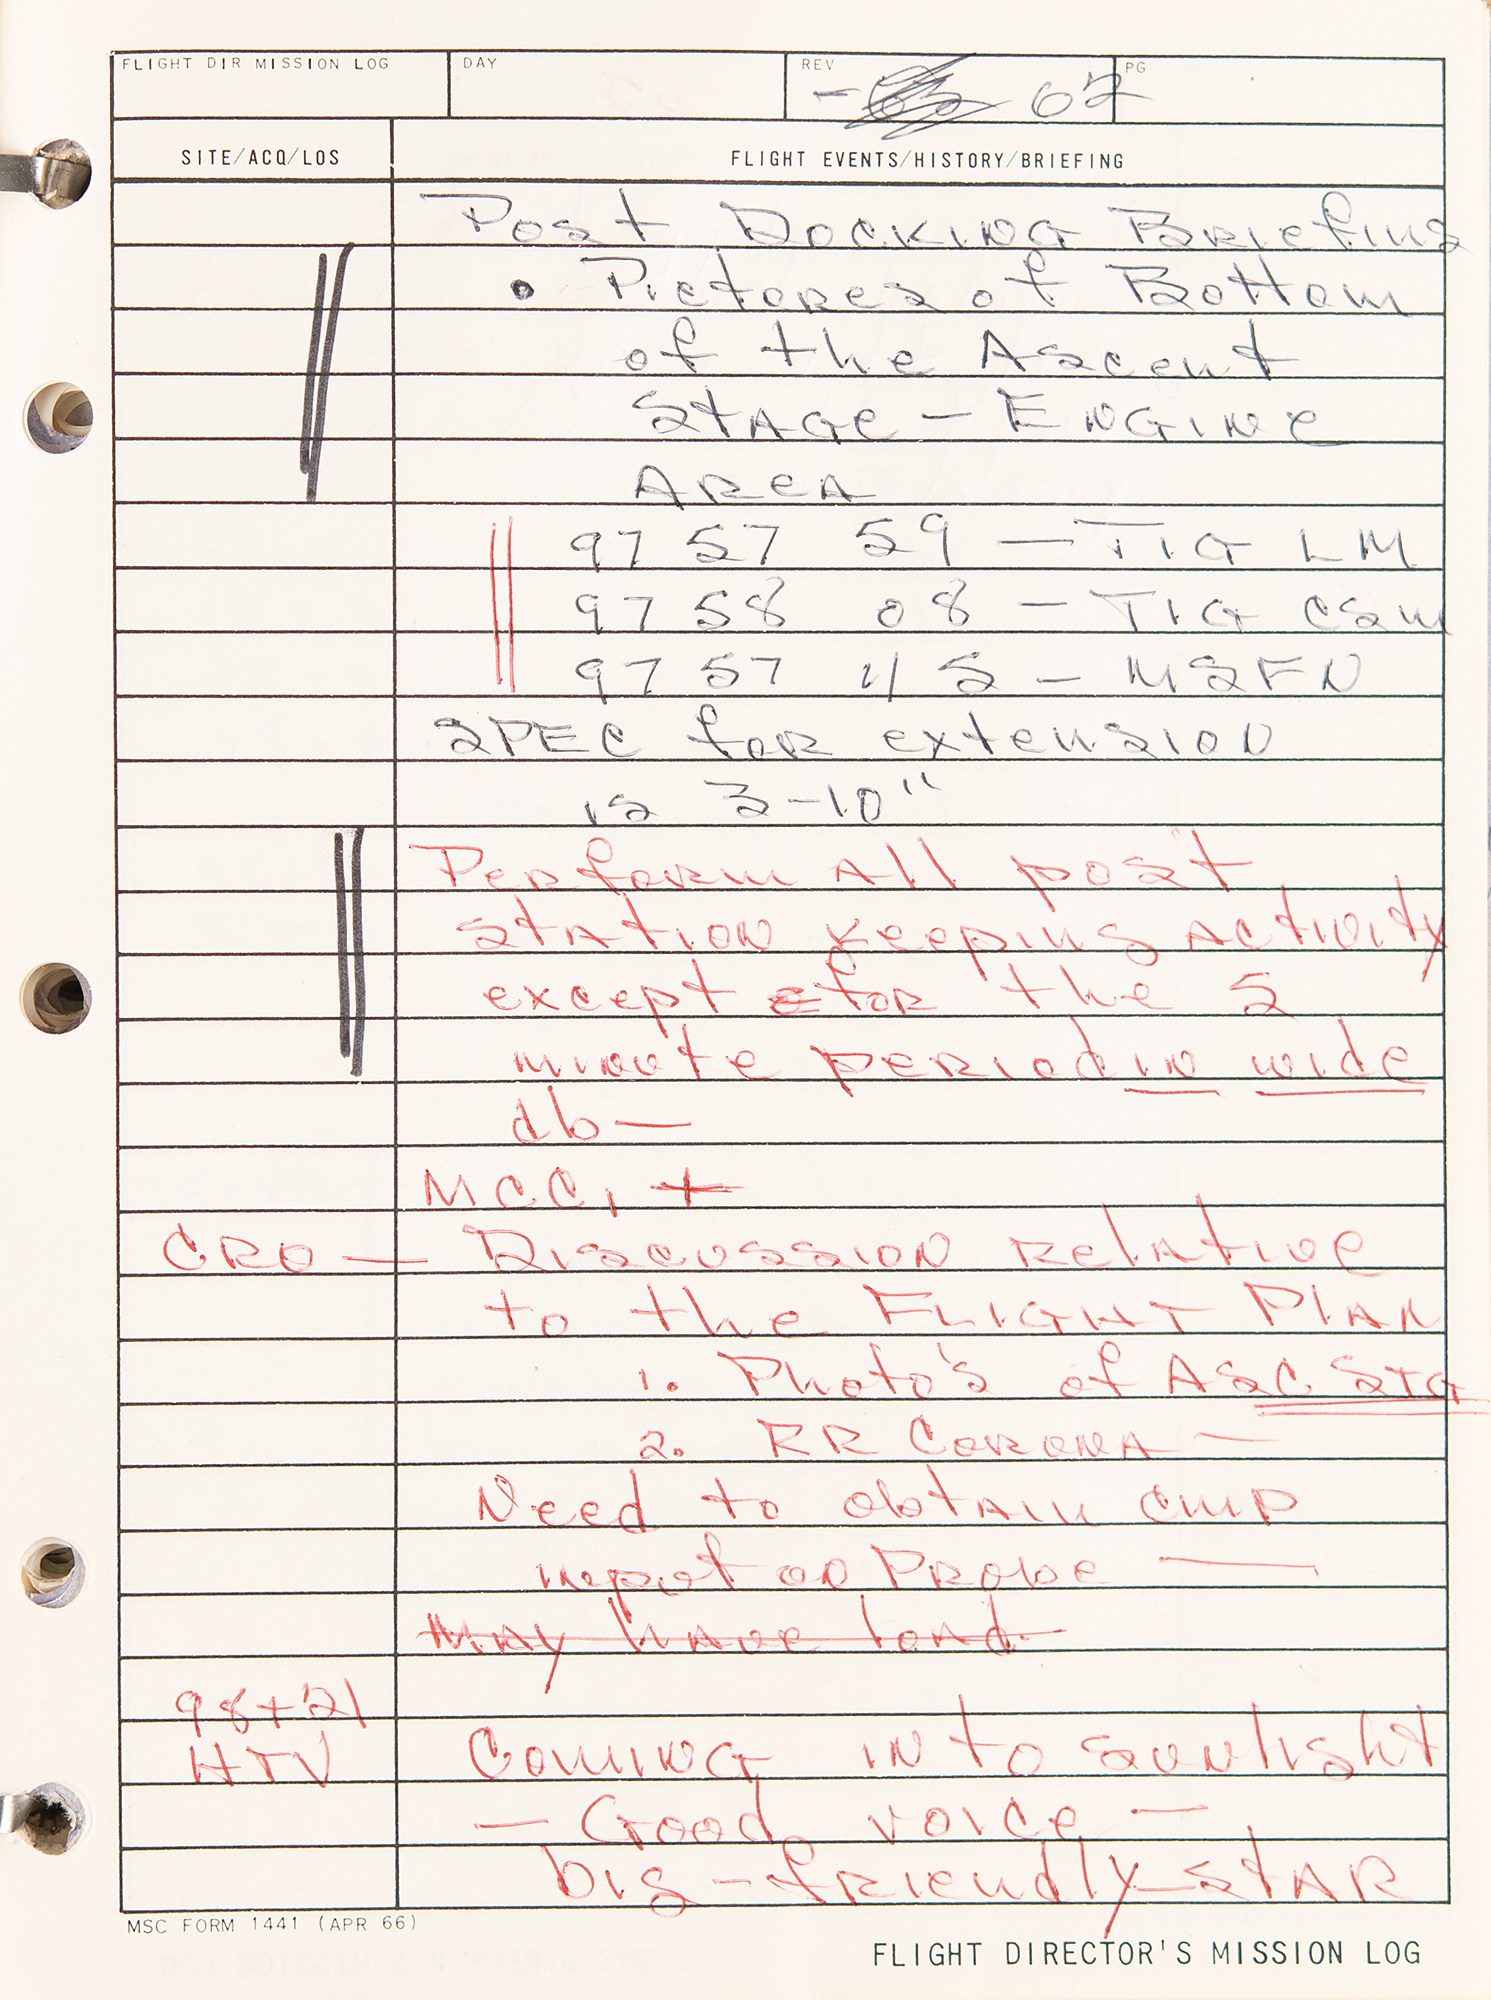 FLIGHT DIR MISSION LOG DAY REV PG
- 62
SITE/ACQ/LOS FLIGHT EVENTS/HISTORY/BRIEFING
Post Docking Briefing
• Pictures of Bottom
of the Ascent
Stage - Engine
Area
97 57 59 — TIG LM
97 58 08 - TIG CSM
97 57 - MSFN
SPEC for extension
is 3-10"
Perform All post
station keeping activity
except for the 5
minute period in wide
db —
MCC,
CRO — Discussion relative
to the FLIGHT PLAN
1. Photo's of ASC STG
2. RR Corona —
Need to obtain CMP
input on Probe —
May have tond.
98+21
HTV Coming in to sunlight
— Good voice —
big - friendly star
MSC FORM 1441 (APR 66)
FLIGHT DIRECTOR'S MISSION LOG